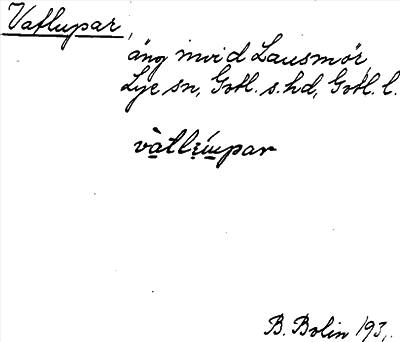 Vatlupar,
äng invid Lausmör,
Lye sn, Gotl. s. hd, Gotl. l.
vàtlúpar
B. Bolin 193,.